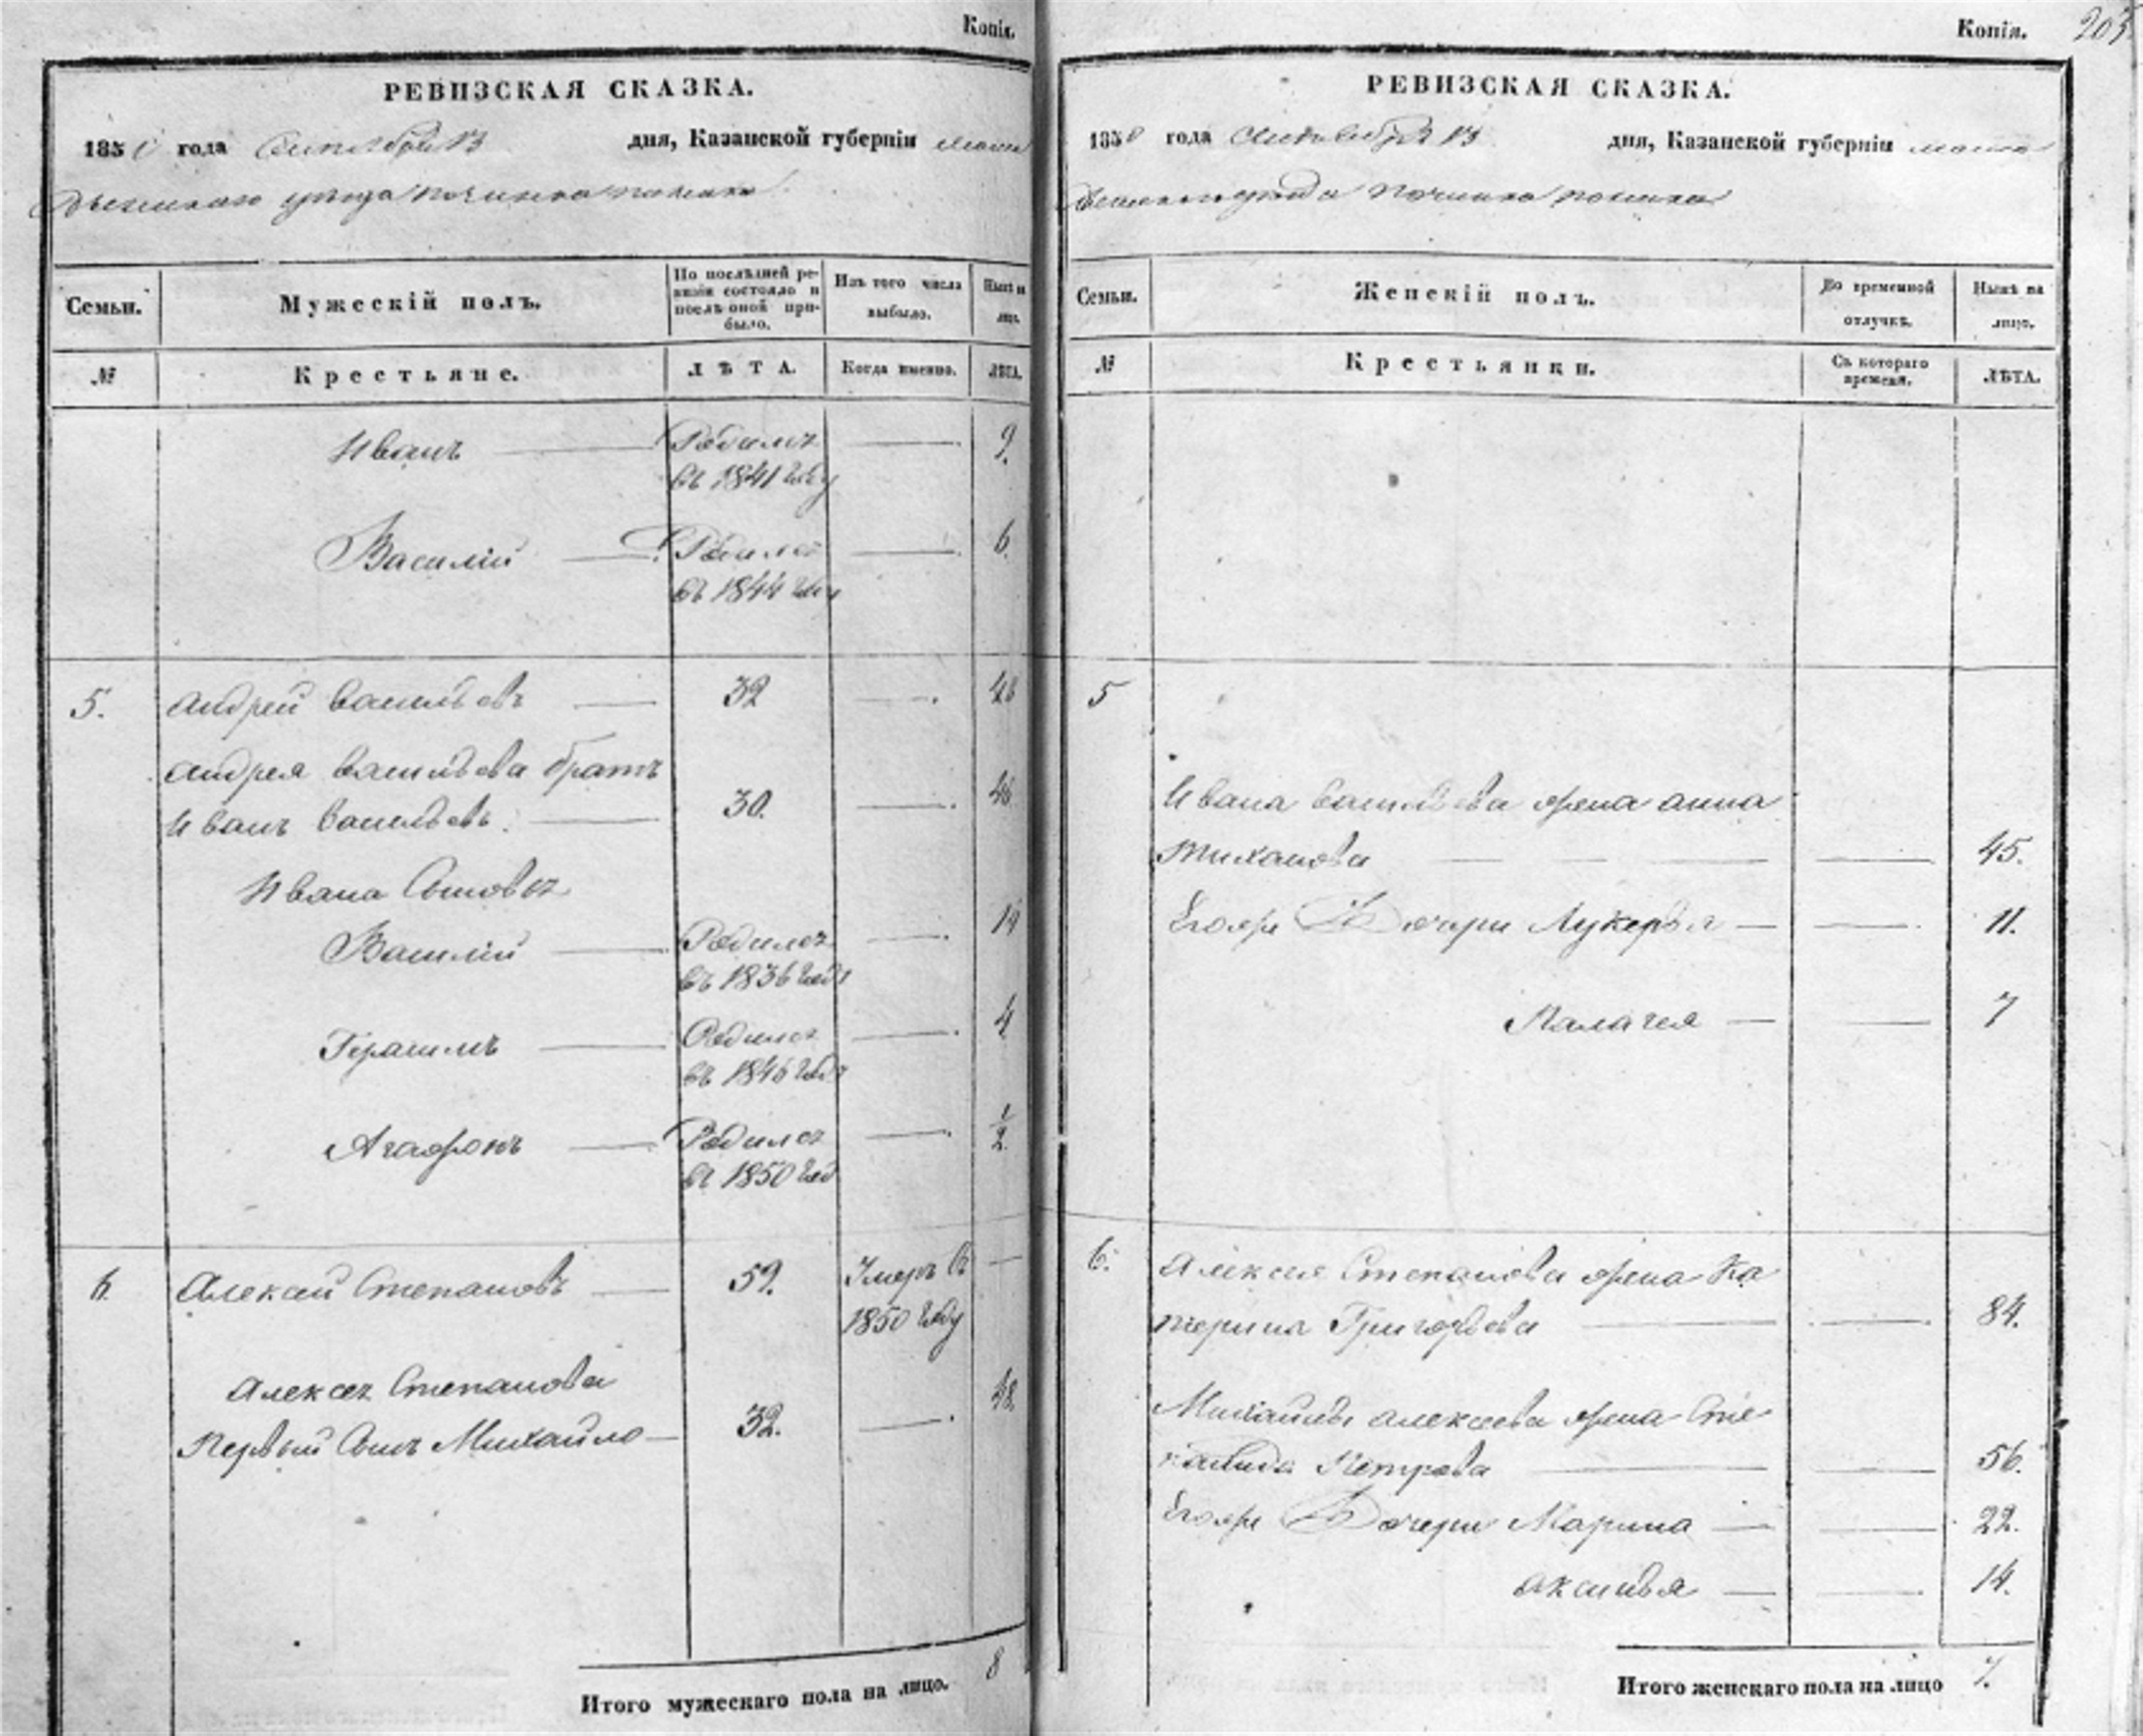 Копія.
РЕВИЗСКАЯ СКАЗКА.
1850 года Сентября 13 дня, Казанской губерніи
уѣзда починка
Семьи.
Мужескій полъ.
По послѣдней ревизіи состояло и послѣ оной прибыло.
Изъ того числа выбыло.
Нынѣ на лицо.
№
Крестьяне.
ЛѢТА.
Когда именно.
ЛѢТА.
Иванъ — Родился — 9.
въ 1841 году
Василій — Родился — 6.
въ 1844 году
5. Андрей Васильевъ — 32 — 48
Андрея Васильева братъ
Иванъ Васильевъ — 30. — 46
Ивана Сыновья
Василій — Родился — 14
въ 1836 году
Герасимъ — Родился — 4
въ 1846 году
Агафонъ — Родился — 1/2
въ 1850 году
6. Алексей Степановъ — 59. Умеръ въ —
1850 году
Алексея Степанова
Первый Сынъ Михайло — 32. — 48.
Итого мужескаго пола на лицо. 8
Копія. 205
РЕВИЗСКАЯ СКАЗКА.
1850 года Сентября 13 дня, Казанской губерніи
уѣзда починка
Семьи.
Женскій полъ.
Во временной отлучкѣ.
Нынѣ на лицо.
№
Крестьянки.
Съ котораго времени.
ЛѢТА.
5
Ивана Васильева жена анна
Тиханова — — 45.
Егожъ Дочери Лукерья — — 11.
Палагея — — 7
6. Алексея Степанова жена Ка
терина Григорьева — — 84.
Михайлы Алексеева жена Сте
панида Петрова — — 56.
Егожъ Дочери Марина — — 22.
Аксинья — — 14.
Итого женскаго пола на лицо 7.